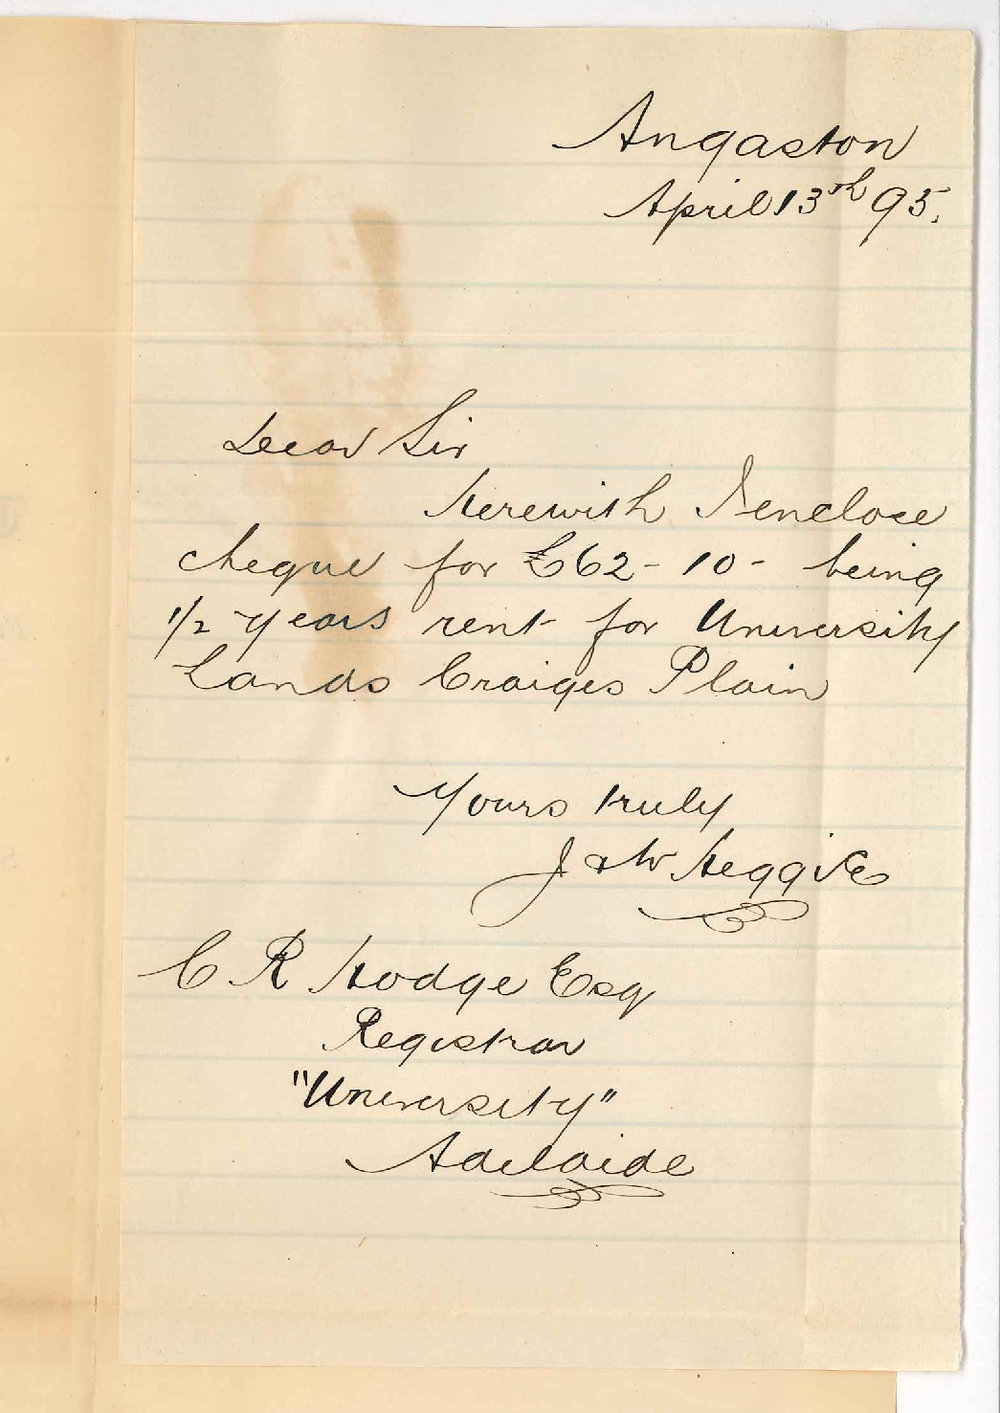 Angaston
April 13th 95.
Dear Sir
Herewith I enclose
cheque for £62-10- being
1/2 years rent for University
Lands Craiges Plain
Yours truly
J & W Heggie
C R Hodge Esq
Registrar
"University"
Adelaide